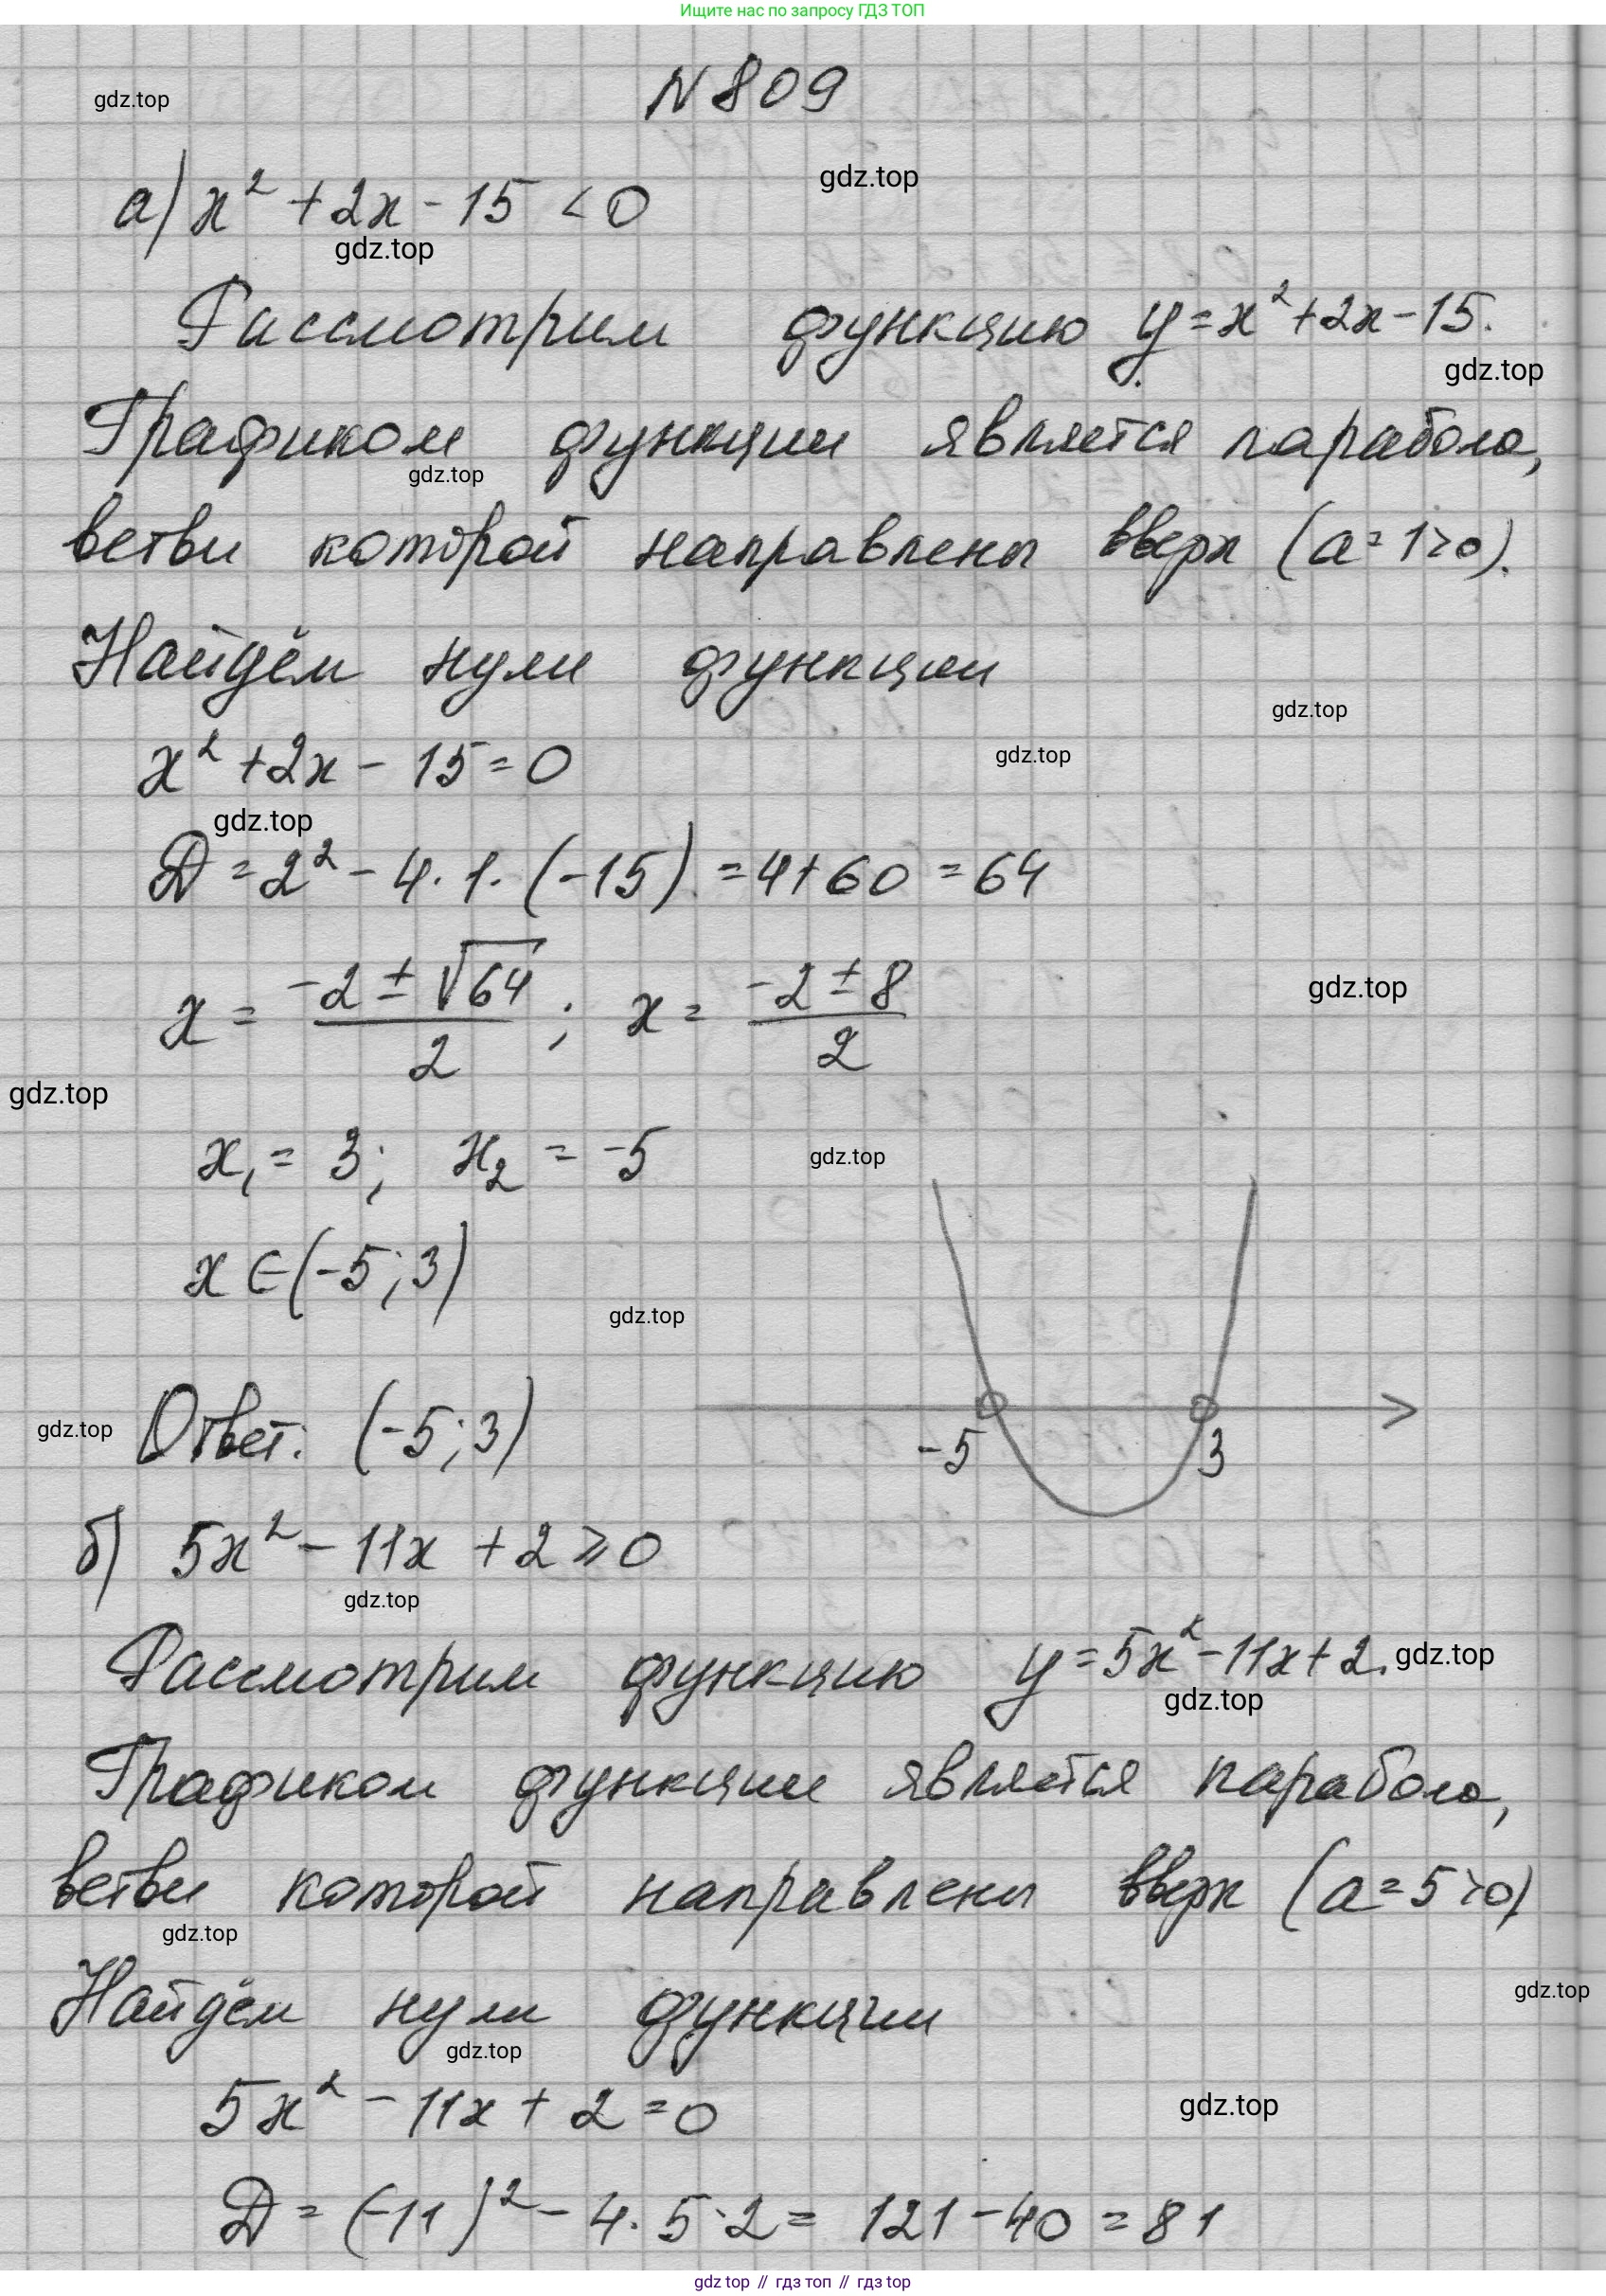 Ищите нас по запросу ГДЗ ТОП
N 809
gdz.top
gdz.top
а) x² + 2x - 15 < 0
gdz.top
Рассмотрим функцию y = x² + 2x - 15.
gdz.top
Графиком функции является парабола,
gdz.top
ветви которой направлены вверх (a = 1 > 0).
Найдём нули функции
gdz.top
x² + 2x - 15 = 0
gdz.top
gdz.top
D = 2² - 4 · 1 · (-15) = 4 + 60 = 64
x = (-2 ± √64)/2 ; x = (-2 ± 8)/2
gdz.top
gdz.top
x₁ = 3; x₂ = -5
gdz.top
x ∈ (-5; 3)
gdz.top
gdz.top
Ответ: (-5; 3)
-5 3
б) 5x² - 11x + 2 ⩾ 0
gdz.top
Рассмотрим функцию y = 5x² - 11x + 2.
gdz.top
gdz.top
Графиком функции является парабола,
ветви которой направлены вверх (a = 5 > 0)
gdz.top
Найдём нули функции
gdz.top
gdz.top
5x² - 11x + 2 = 0
gdz.top
D = (-11)² - 4 · 5 · 2 = 121 - 40 = 81
gdz top // гдз топ // gdz top